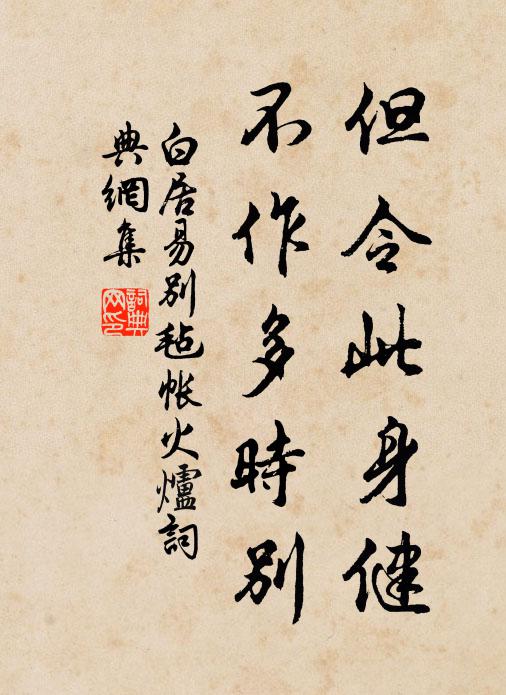 但令此身健
不作多時別
白居易別毡帳火爐詞
典網集
詞典
网印